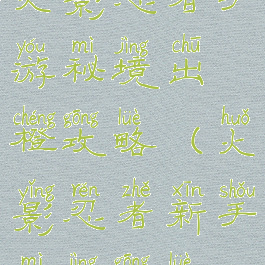 yóu mì jìng chū
游秘境出
chéng gōng lüè huǒ
橙攻略（火
yǐng rěn zhě xīn shǒu
影忍者新手
mì jìng gōng lüè